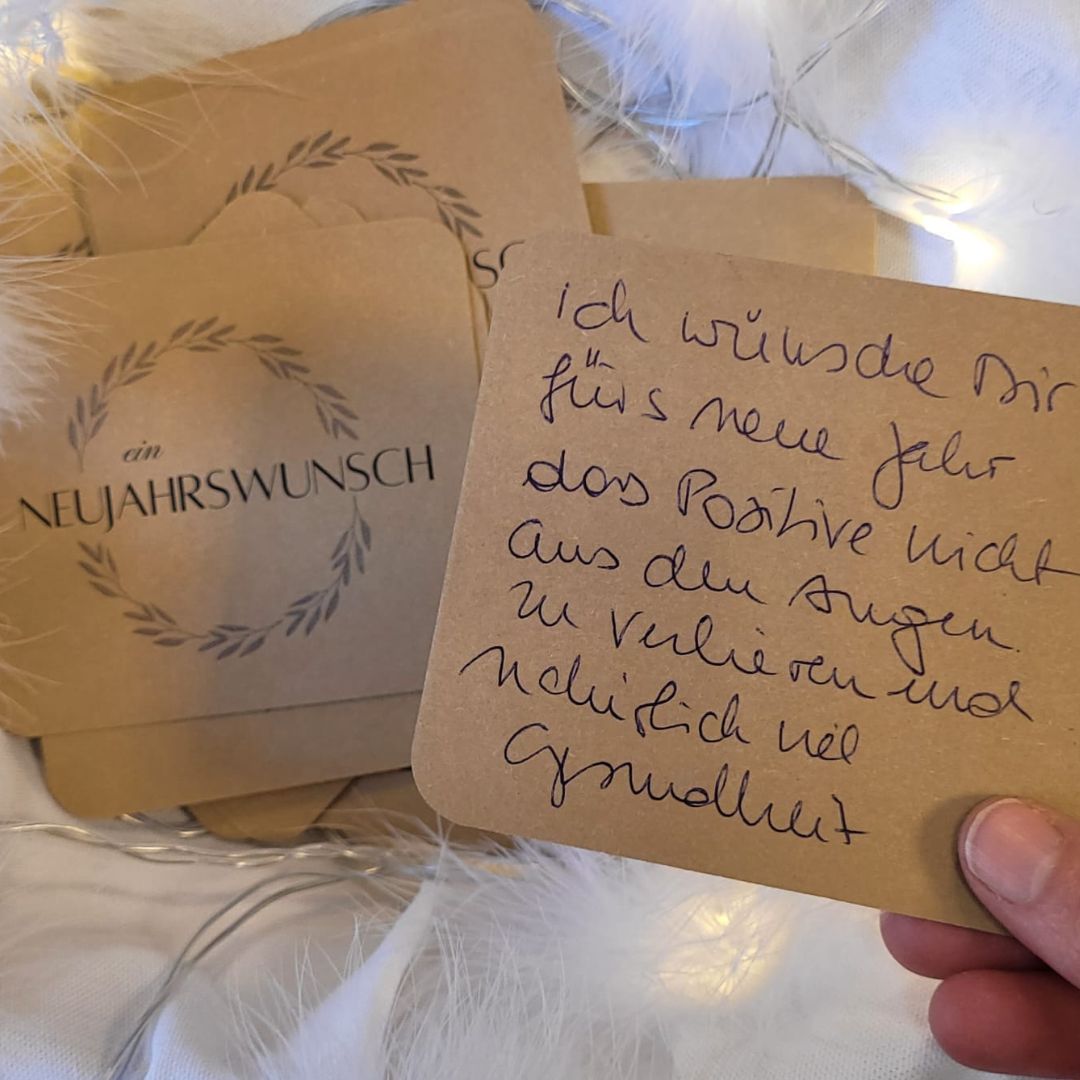 ein
NEUJAHRSWUNSCH
ich wünsche Dir
fürs neue Jahr
das Positive nicht
aus den Augen
zu verlieren und
natürlich viel
Gesundheit